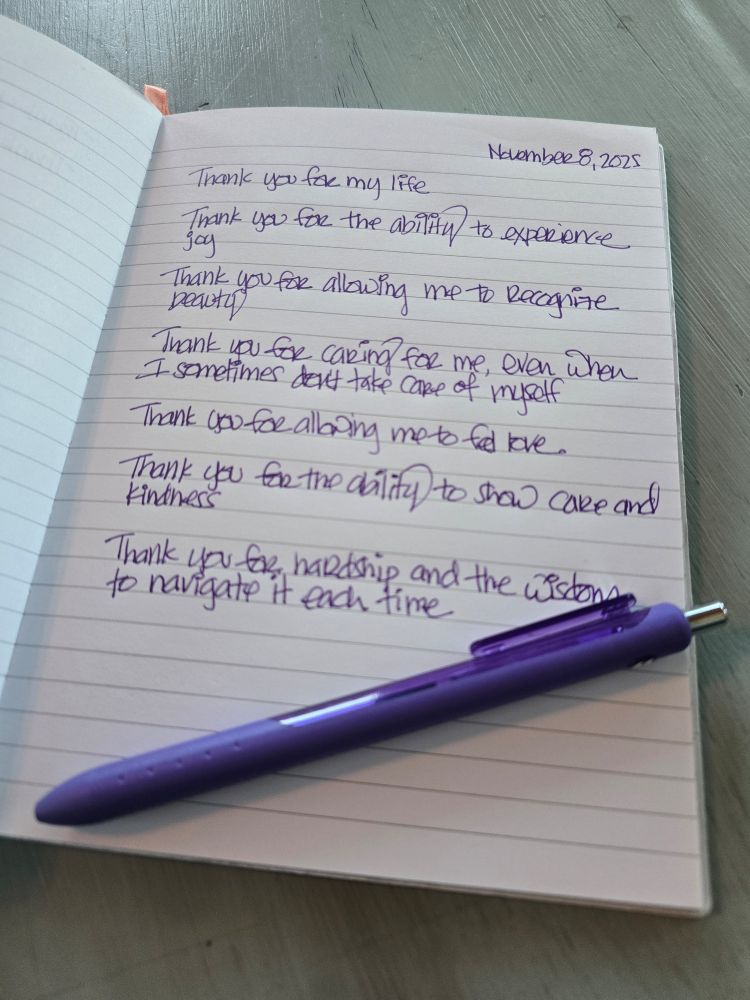 November 8, 2025
Thank you for my life
Thank you for the ability to experience
joy
Thank you for allowing me to recognize
beauty
Thank you for caring for me, even when
I sometimes don't take care of myself
Thank you for allowing me to feel love.
Thank you for the ability to show care and
kindness
Thank you for hardship and the wisdom
to navigate it each time